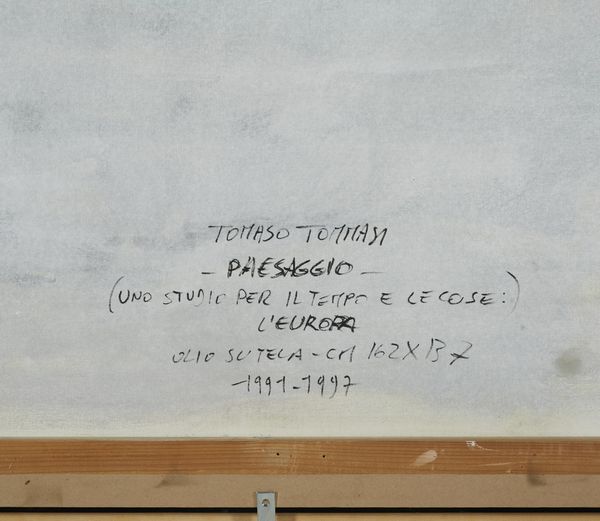 TOMASO TOMMASI
- PAESAGGIO -
(UNO STUDIO PER IL TEMPO E LE COSE:)
L'EUROPA
OLIO SU TELA - CM 162 X 137
1991-1997